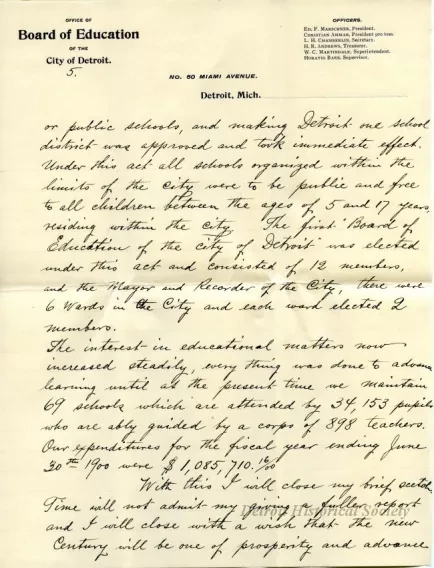 OFFICE OF
Board of Education
OF THE
City of Detroit.
5.
OFFICERS.
ED. F. MARSCHNER, President.
CHRISTIAN AMMAN, President pro tem.
L. H. CHAMBERLIN, Secretary.
H. K. ANDREWS, Treasurer.
W. C. MARTINDALE, Superintendent.
HORATIO BASS, Supervisor.
NO. 50 MIAMI AVENUE.
Detroit, Mich.
or public schools, and making Detroit one school
district was approved and took immediate effect.
Under this act all schools organized within the
limits of the city were to be public and free
to all children between the ages of 5 and 17 years,
residing within the city. The first Board of
Education of the city of Detroit was elected
under this act and consisted of 12 members,
and the Mayor and Recorder of the City, there were
6 Wards in the City and each ward elected 2
members.
The interest in educational matters now
increased steadily, every thing was done to advance
learning until at the present time we maintain
69 schools which are attended by 34,153 pupils
who are ably guided by a corps of 898 teachers.
Our expenditures for the fiscal year ending June
30th 1900 were $1,085,710.
With this I will close my brief
Time will not admit my giving a fuller report
Detroit Historical Society
and I will close with a wish that the new
Century will be one of prosperity and advance